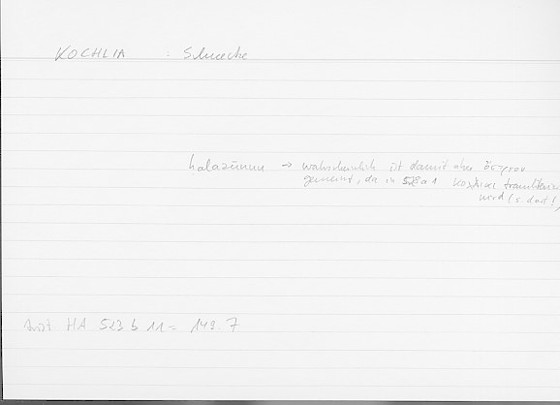 KOCHLIA : Schnecke
halazūnun → wahrscheinlich ist damit aber ὄστρεον
gemeint, da in 528a1
wird (s. dort!)
Arist HA 523 b 11 = 149.7